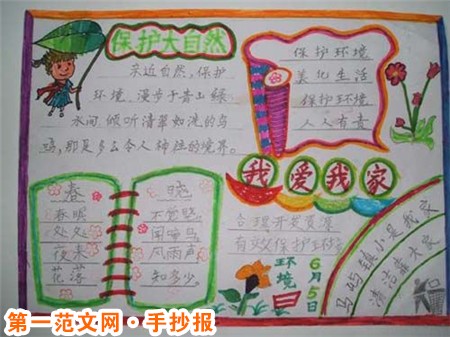 保护大自然
亲近自然,保护
环境,漫步于青山绿
水间,倾听清翠如洗的鸟
鸣,那是多么令人神往的境界。
保护环境
美化生活
保护环境
人人有责
我爱我家
春
春眠
处处
夜来
花落
晓
不觉晓。
闻啼鸟。
风雨声,
知多少。
合理开发资源
有效保护环境
环境日
6月5日
小是我家
清洁靠大家
第一范文网·手抄报